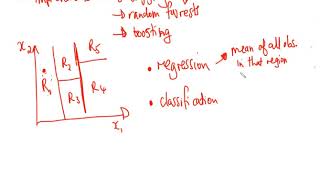 → random forests
→ boosting
x₂
R₁
R₂
R₃
R₅
R₄
x₁
• regression → mean of all obs.
in that region
• classification